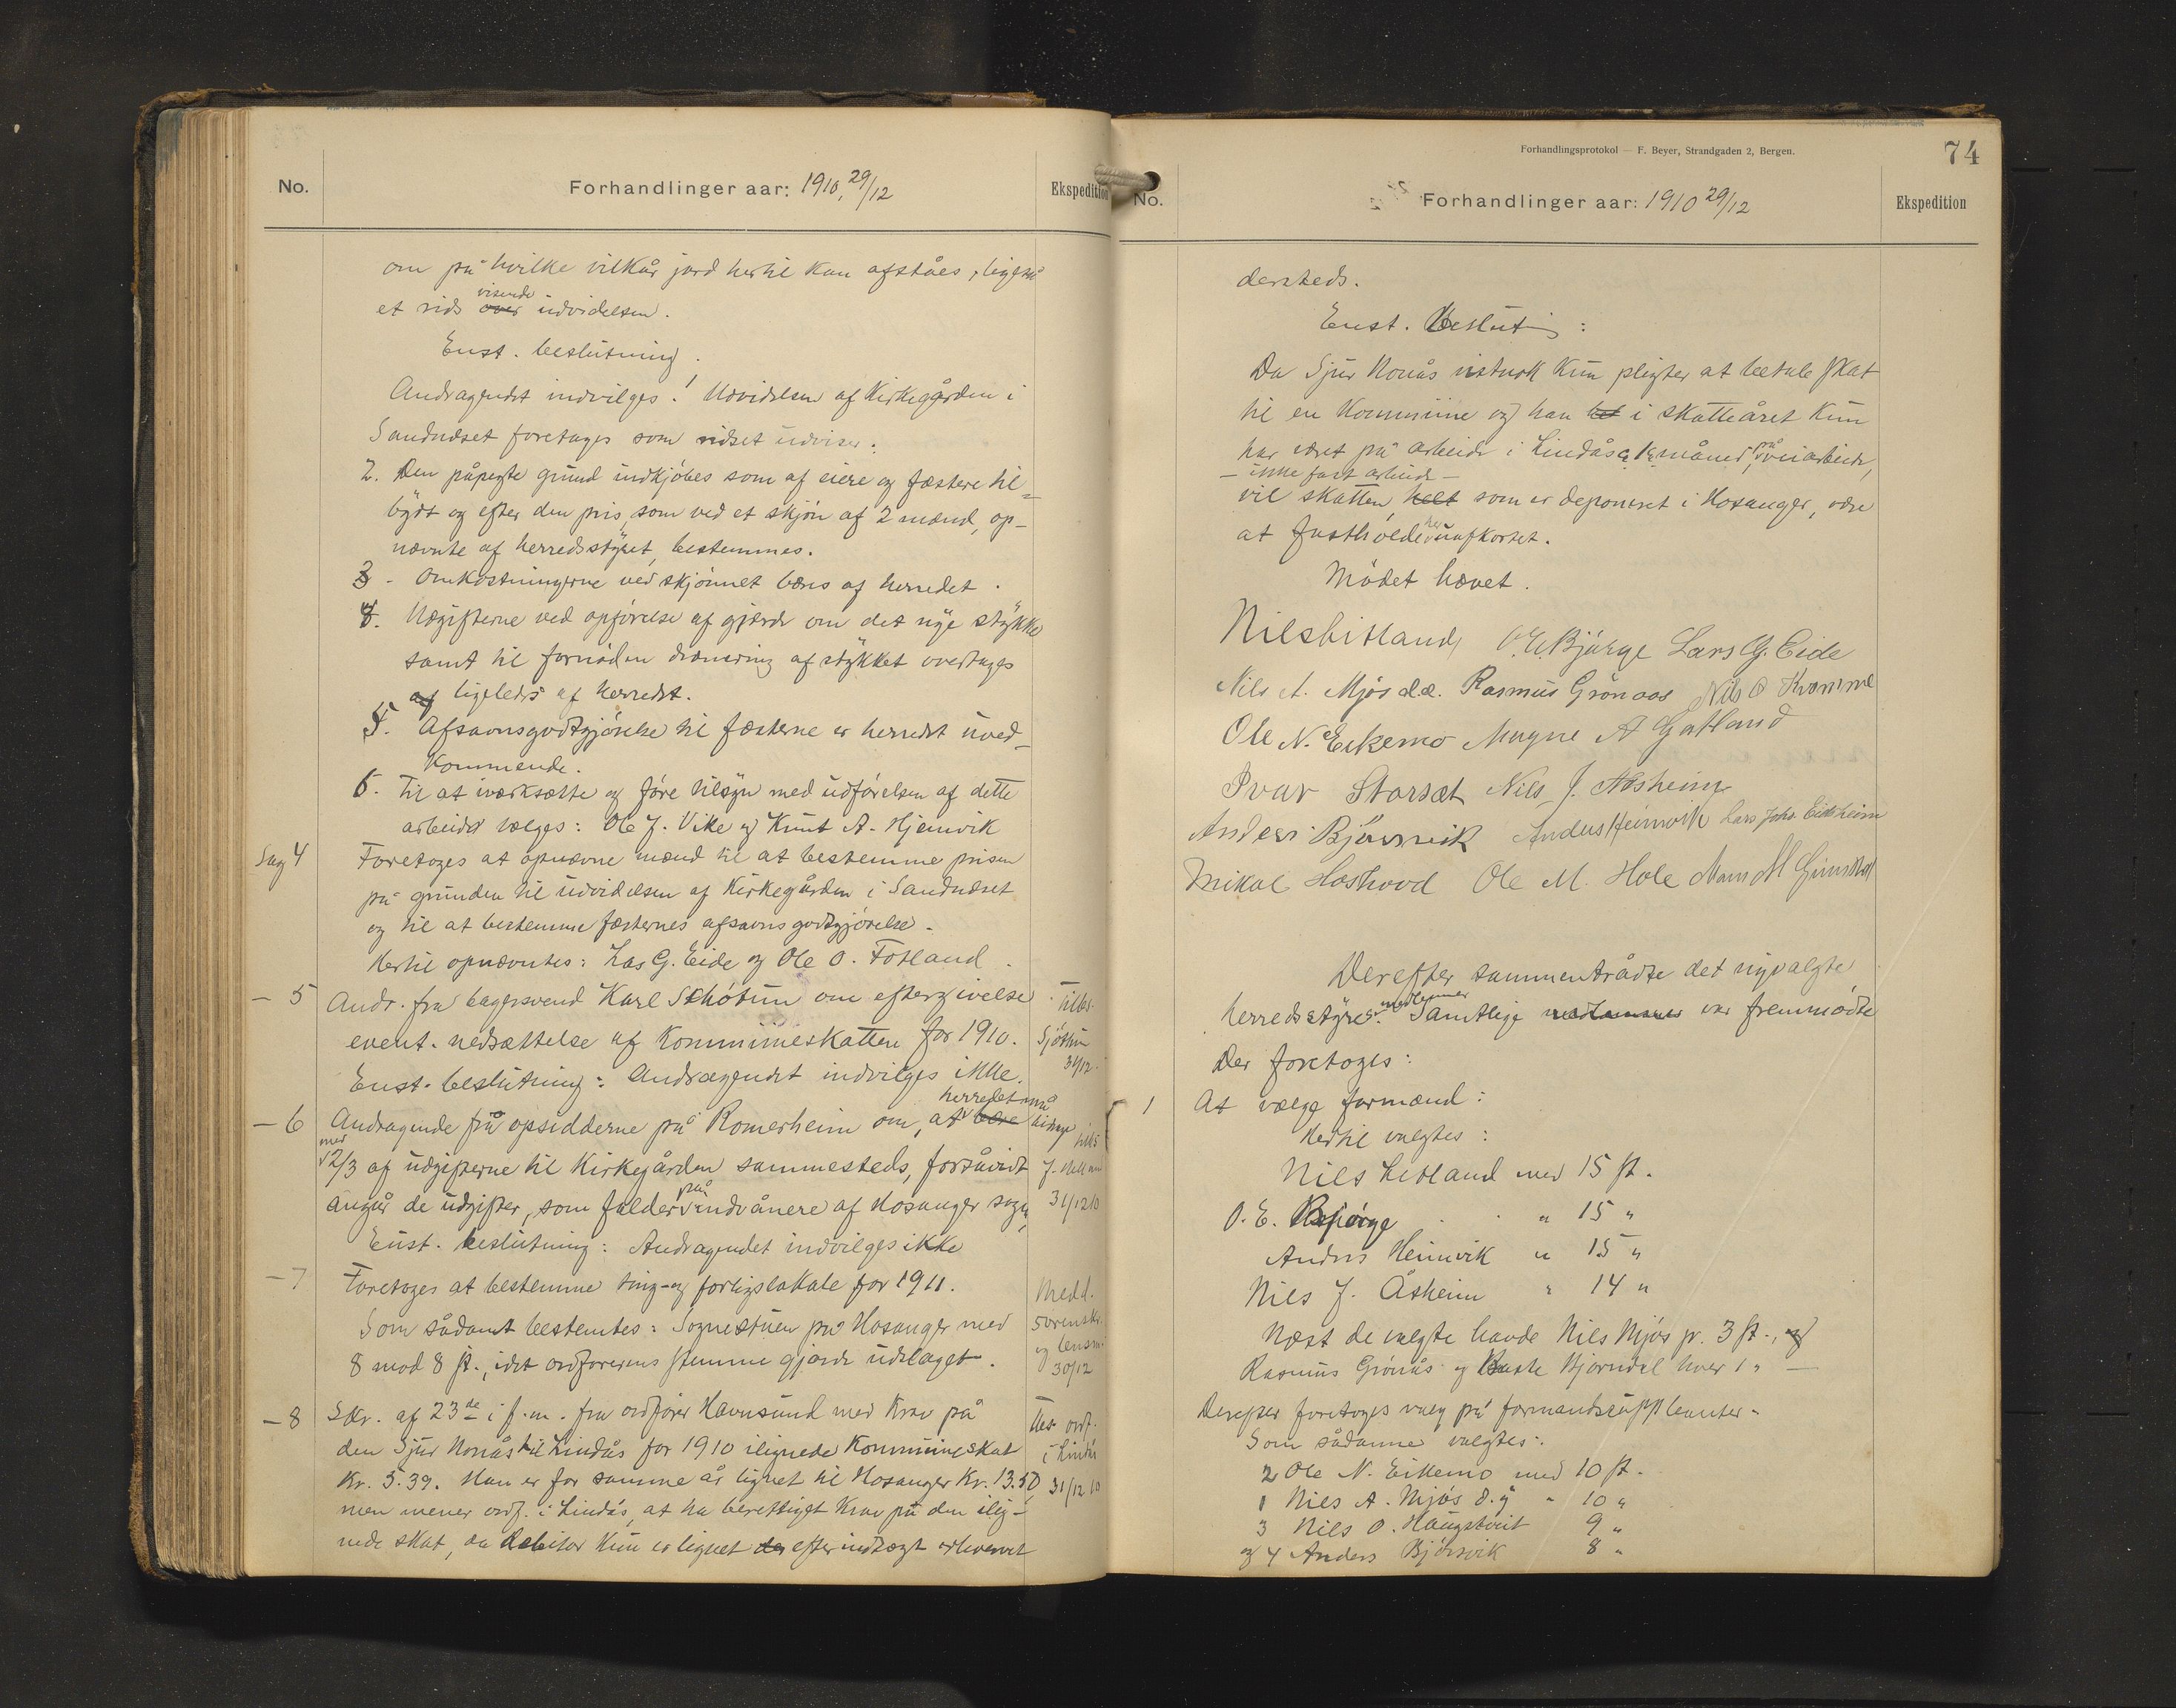 No.
Forhandlinger aar: 1910, 29/12
Ekspedition
om på hvilke vilkår jord hertil kan afståes, ligeså
et rids over visende udvidelsen.
Enst. beslutning.
Andragendet indvilges! Udvidelsen af Kirkegården i
Sandnæset foretages som ridset udviser.
2. Den påpegte grund indkjöbes som af eiere og fæstere til=
bydt og efter den pris, som ved et skjön af 2 mænd, op-
nævnte af herredsstyret, bestemmes.
3 - Omkostningerne ved skjönnet bæres af herredet.
4. Udgifterne ved opförelse af gjærde om det nye stykke
samt til fornöden drænering af stykket overtages
af ligeledes af herredet.
5. Afsavnsgodtgjörelse til fæsterne er herredet uved-
kommende.
6. Til at iværksætte og före tilsyn med udförelsen af dette
arbeide vælges: Ole J. Vike og Knut A. Hjemvik
Sag 4
Foretoges at opnævne mænd til at bestemme prisen
på grunden til udvidelsen af Kirkegården i Sandnæset
og til at bestemme fæsternes afsavnsgodtgjörelse.
Hertil opnævntes: Lars G. Eide og Ole O. Fotland.
- 5 Andr. fra bagersvend Karl Schötun om eftergivelse
event. nedsættelse af Kommuneskatten for 1910.
Enst. beslutning: Andragendet indvilges ikke.
Sjötun
31/12.
- 6 Andragende fra opsidderne på Romerheim om, at bære herredet må bidrage
med 2/3 af udgifterne til Kirkegården sammesteds, forsåvidt
angår de udgifter, som falder på indvånere af Hosanger sogn,
Enst. beslutning: Andragendet indvilges ikke
31/12 10
- 7 Foretoges at bestemme ting- og forligslokale for 1911.
Som sådant bestemtes: Sognestuen på Hosanger med
8 mod 8 st., idet ordförerens stemme gjorde udslaget.
Medd.
sorenskr.
og lensm.
30/12
- 8 Skr. af 23de i f.m. fra ordförer Havnsund med Krav på
den Sjur Monås til Lindås for 1910 ilignede Kommuneskat
Kr. 5.39. Han er for samme år lignet til Hosanger Kr. 13.50,
men mener ordf. i Lindås, at ha berettiget Krav på den ilig-
nede skat, da Debitor kun er lignet der efter indtægt erhvervet
ordf.
i Lindås
31/12 10
Forhandlingsprotokol — F. Beyer, Strandgaden 2, Bergen.
74
No.
Forhandlinger aar: 1910 29/12
Ekspedition
dersteds.
Enst. Beslutning:
Da Sjur Monås kun pligter at betale skat
til en Kommune og han i skatteåret kun
har været på arbeide i Lindås måned, på veiarbeide,
- ikke fast arbeide -
vil skatten, helt som er deponeret i Hosanger, være
at fastholde her uafkortet.
Mödet hævet.
Nils Litland O. E. Bjørge Lars G. Eide
Nils A. Mjøs d.æ. Rasmus Grönaas Nils O Kvamme
Ole N. Eikemo Magne A Gatland
Ivar Storsæt Nils J. Aasheim
Anders Bjørsvik Anders Heimvik Lars Johs. Eidsheim
Mikal Hostvod Ole M. Hole Mons M Grimstad
Derefter sammentrådte det nyvalgte
herredsstyre. Samtlige medlemmer medlemmer var fremmödte
Der foretoges:
1 At vælge formænd:
Hertil valgtes:
Nils Litland med 15 st.
O. E. Bjørge " 15 "
Anders Heimvik " 15 "
Nils J. Åsheim " 14 "
Næst de valgte havde Nils Mjös jr. 3 st., og
Rasmus Grönås og Bjørndal hver 1 " -
Derefter foretoges valg på formandssuppleanter.
Som sådanne valgtes:
2 Ole N. Eikemo med 10 st.
1 Nils A. Mjös d.y. " 10 "
3 Nils O. Haugstveit 9 "
og 4 Anders Bjørsvik 8 "